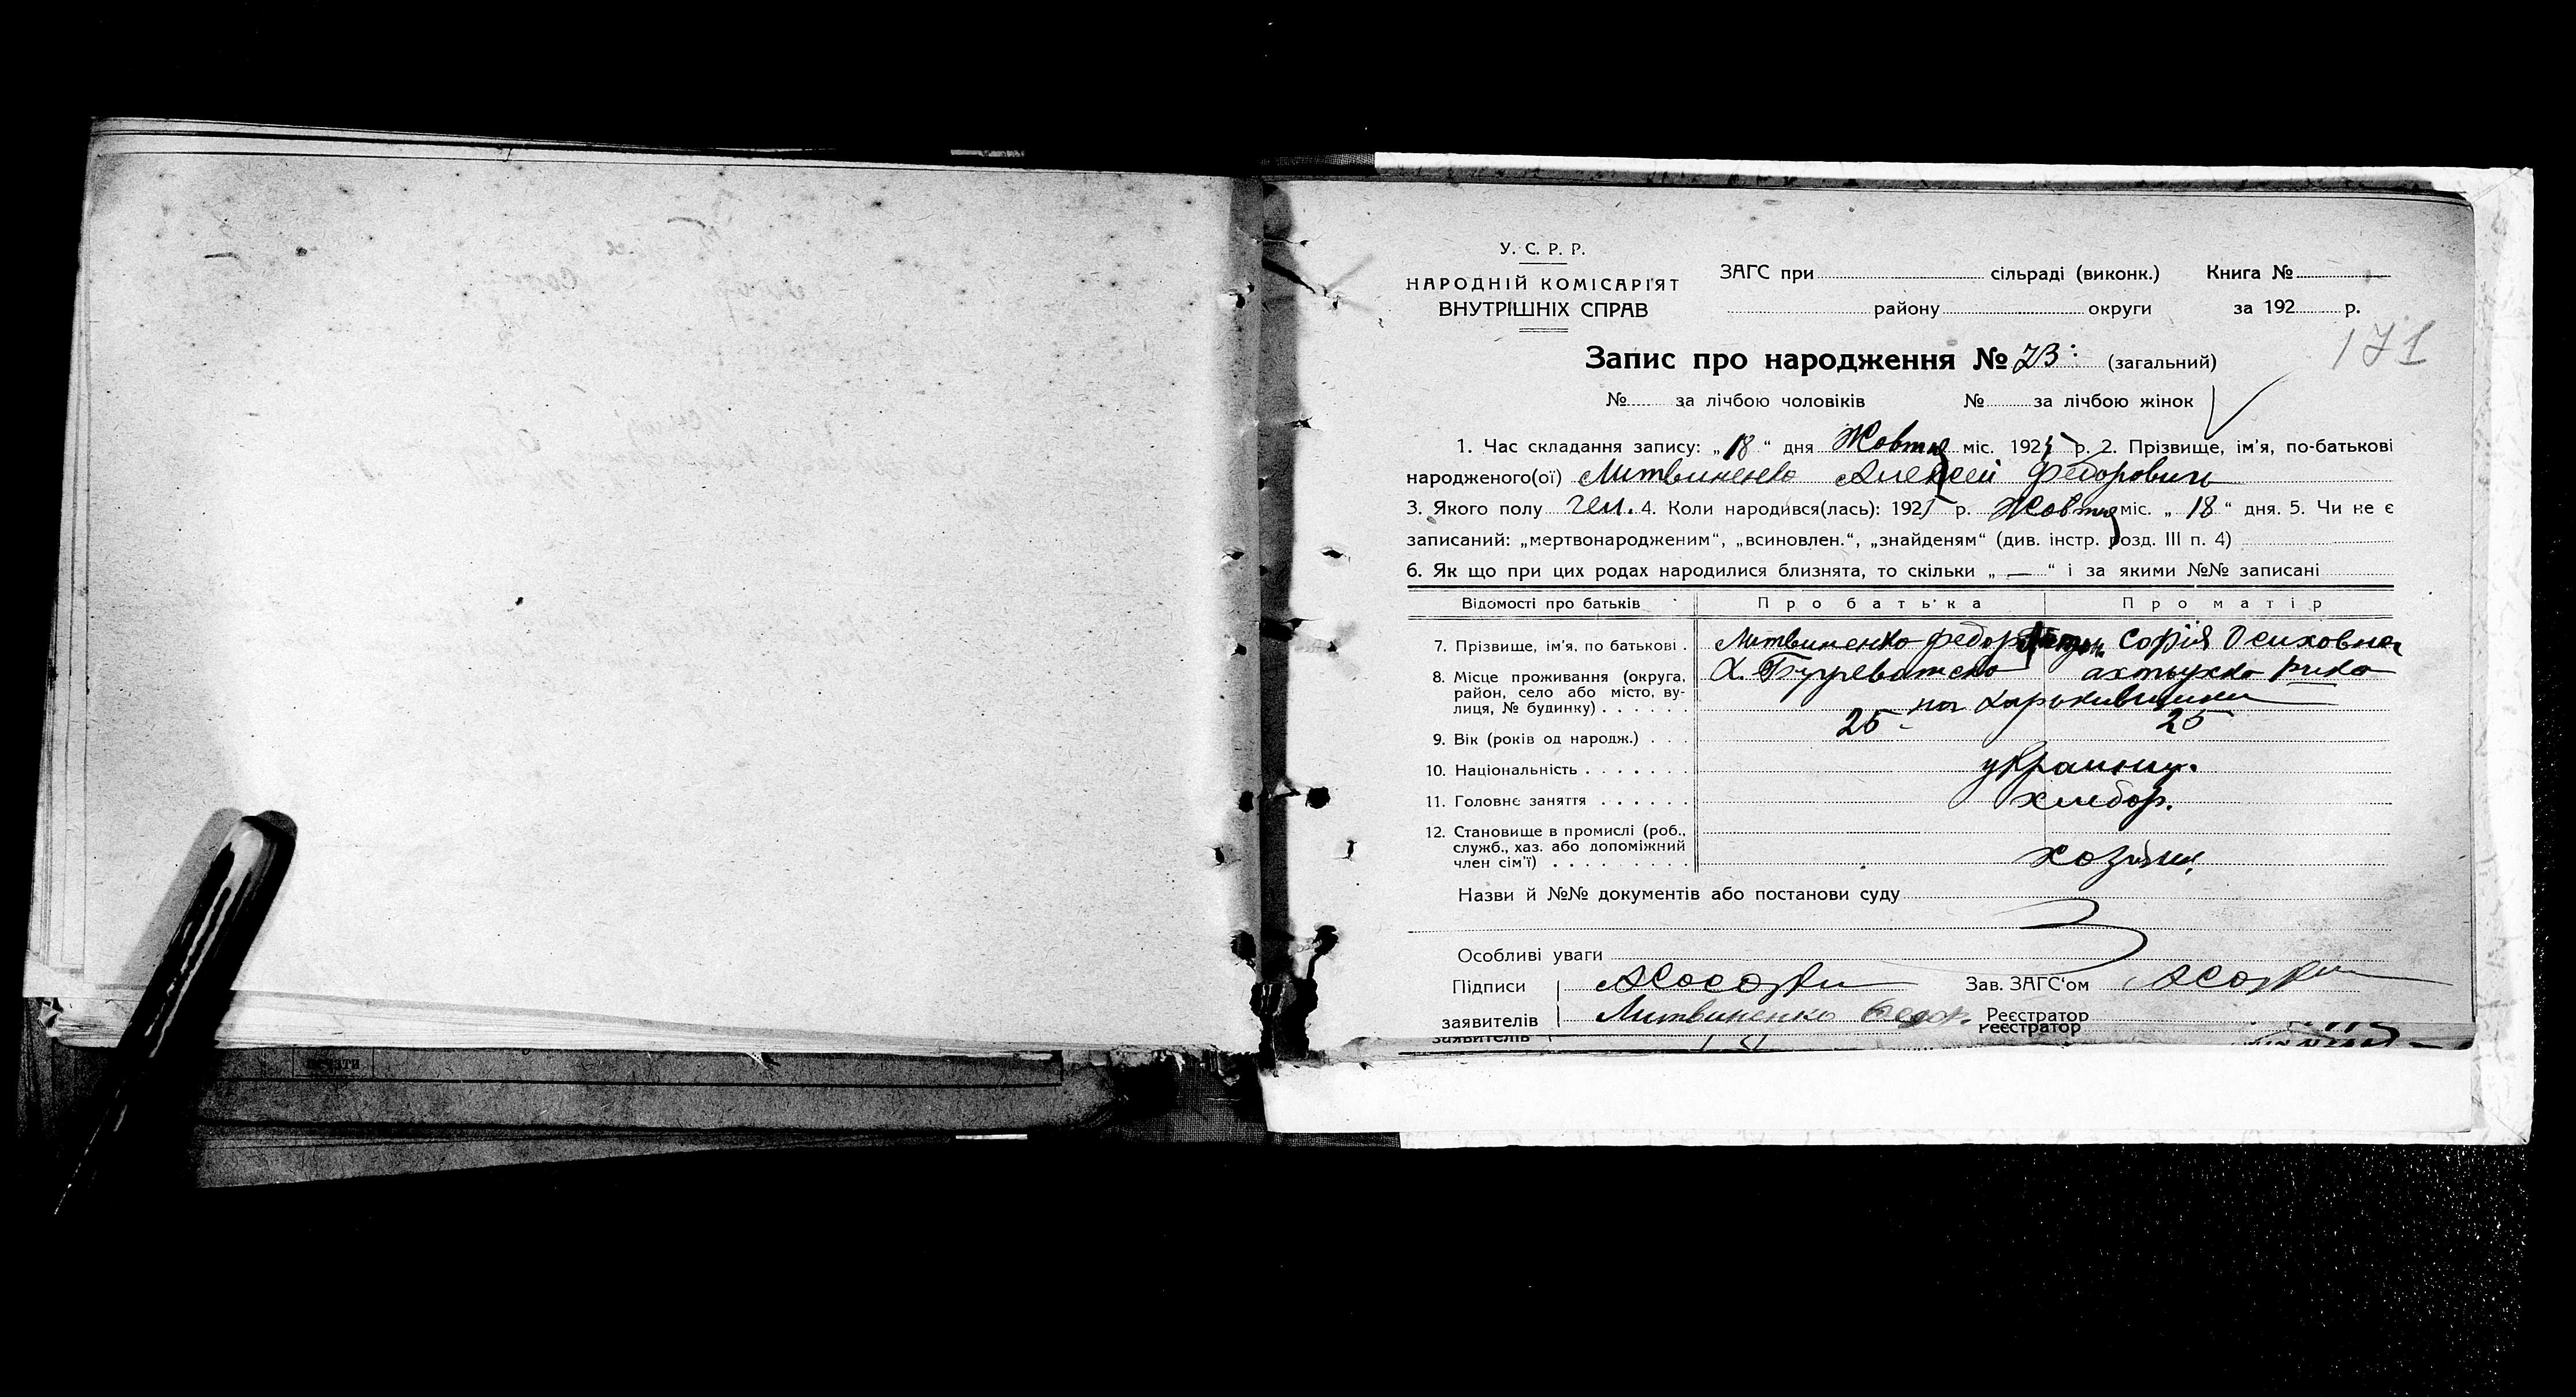 У. С. Р. Р.
НАРОДНІЙ КОМІСАРІ'ЯТ
ВНУТРІШНІХ СПРАВ
ЗАГС при сільраді (виконк.) Книга №
району округи за 192 р.
171
Запис про народження № 73 (загальний)
№ за лічбою чоловіків № за лічбою жінок
1. Час складання запису: „18“ дня Жовтня міс. 192 р. 2. Прізвище, ім'я, по-батькові
народженого(ої) Литвиненко Алексей Федорович
3. Якого полу чел. 4. Коли народився(лась): 192 р. Жовтня міс. „18“ дня. 5. Чи не є
записаний: „мертвонародженим“, „всиновлен.“, „знайденям“ (див. інстр. розд. III п. 4)
6. Як що при цих родах народилися близнята, то скільки „—“ і за якими №№ записані
Відомості про батьків Про батька Про матір
7. Прізвище, ім'я, по батькові Литвиненко Федор Софія Осиховна
8. Місце проживання (округа, район, село або місто, вулиця, № будинку) Х.
на
9. Вік (років од народж.) 25 25
10. Національність украинц.
11. Головне заняття хлебор.
12. Становище в промислі (роб., служб., хаз. або допоміжний член сім'ї)
Назви й №№ документів або постанови суду
Особливі уваги
Підписи Зав. ЗАГС'ом
заявителів Литвиненко Федор. Реєстратор
заявителів Реєстратор